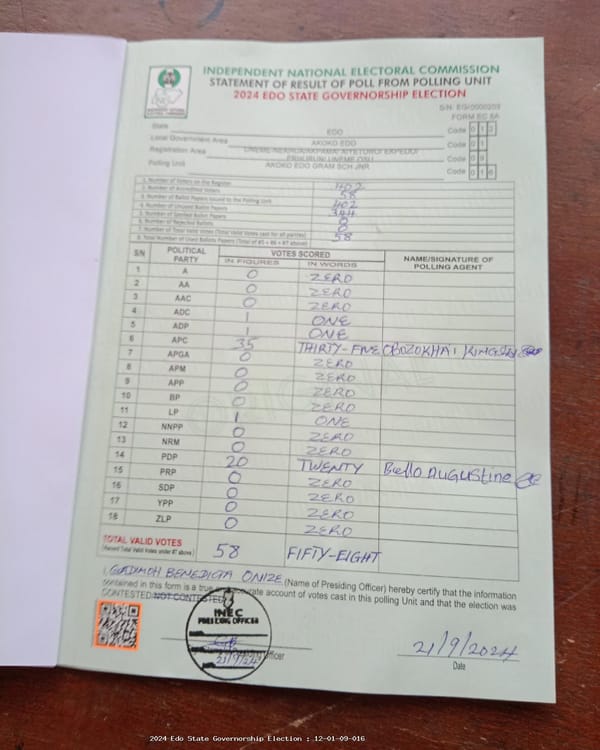 INDEPENDENT NATIONAL ELECTORAL COMMISSION
STATEMENT OF RESULT OF POLL FROM POLLING UNIT
2024 EDO STATE GOVERNORSHIP ELECTION
FORM EC 8A
State EDO Code 0 1 2
Local Government Area AKOKO EDO Code 0 1
Registration Area Code 0 9
Polling Unit AKOKO EDO GRAM SCH JNR Code 0 1 6
1. Number of Voters on the Register 402
2. Number of Accredited Voters 58
3. Number of Ballot Papers Issued to the Polling Unit 402
4. Number of Unused Ballot Papers 344
5. Number of Spoiled Ballot Papers 0
6. Number of Rejected Ballots 0
7. Number of Total Valid Votes (Total Valid Votes cast for all parties) 58
8. Total Number of Used Ballots Papers (Total of #5 + #6 + #7 above)
S/N POLITICAL PARTY VOTES SCORED NAME/SIGNATURE OF POLLING AGENT
IN FIGURES IN WORDS
1 A 0 ZERO
2 AA 0 ZERO
3 AAC 0 ZERO
4 ADC 1 ONE
5 ADP 1 ONE
6 APC 35 THIRTY-FIVE
7 APGA 0 ZERO
8 APM 0 ZERO
9 APP 0 ZERO
10 BP 0 ZERO
11 LP 1 ONE
12 NNPP 0 ZERO
13 NRM 0 ZERO
14 PDP 20 TWENTY Bello AUGUSTINE
15 PRP 0 ZERO
16 SDP 0 ZERO
17 YPP 0 ZERO
18 ZLP 0 ZERO
TOTAL VALID VOTES 58 FIFTY-EIGHT
(Record Total Valid Votes under #7 above)
I, BENEDICTA ONIZE (Name of Presiding Officer) hereby certify that the information
contained in this form is a true accurate account of votes cast in this polling Unit and that the election was
CONTESTED/NOT CONTESTED
INEC
PRESIDING OFFICER
21/9/24
Officer
21/9/2024
Date
2024 Edo State Governorship Election : 12-01-09-016